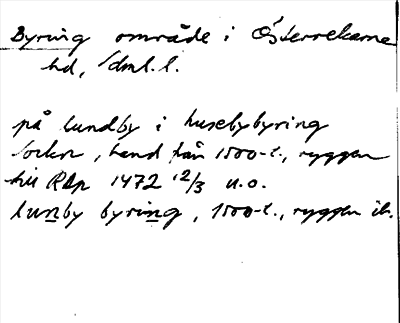 Byring område i Österrekarne
hd, Sdml. l.
på lundby i husebybyring
Socken, hand från 1500-t., ryggen
till RAp 1472 12/3 u.o.
lunby byring, 1500-t., ryggen ib.